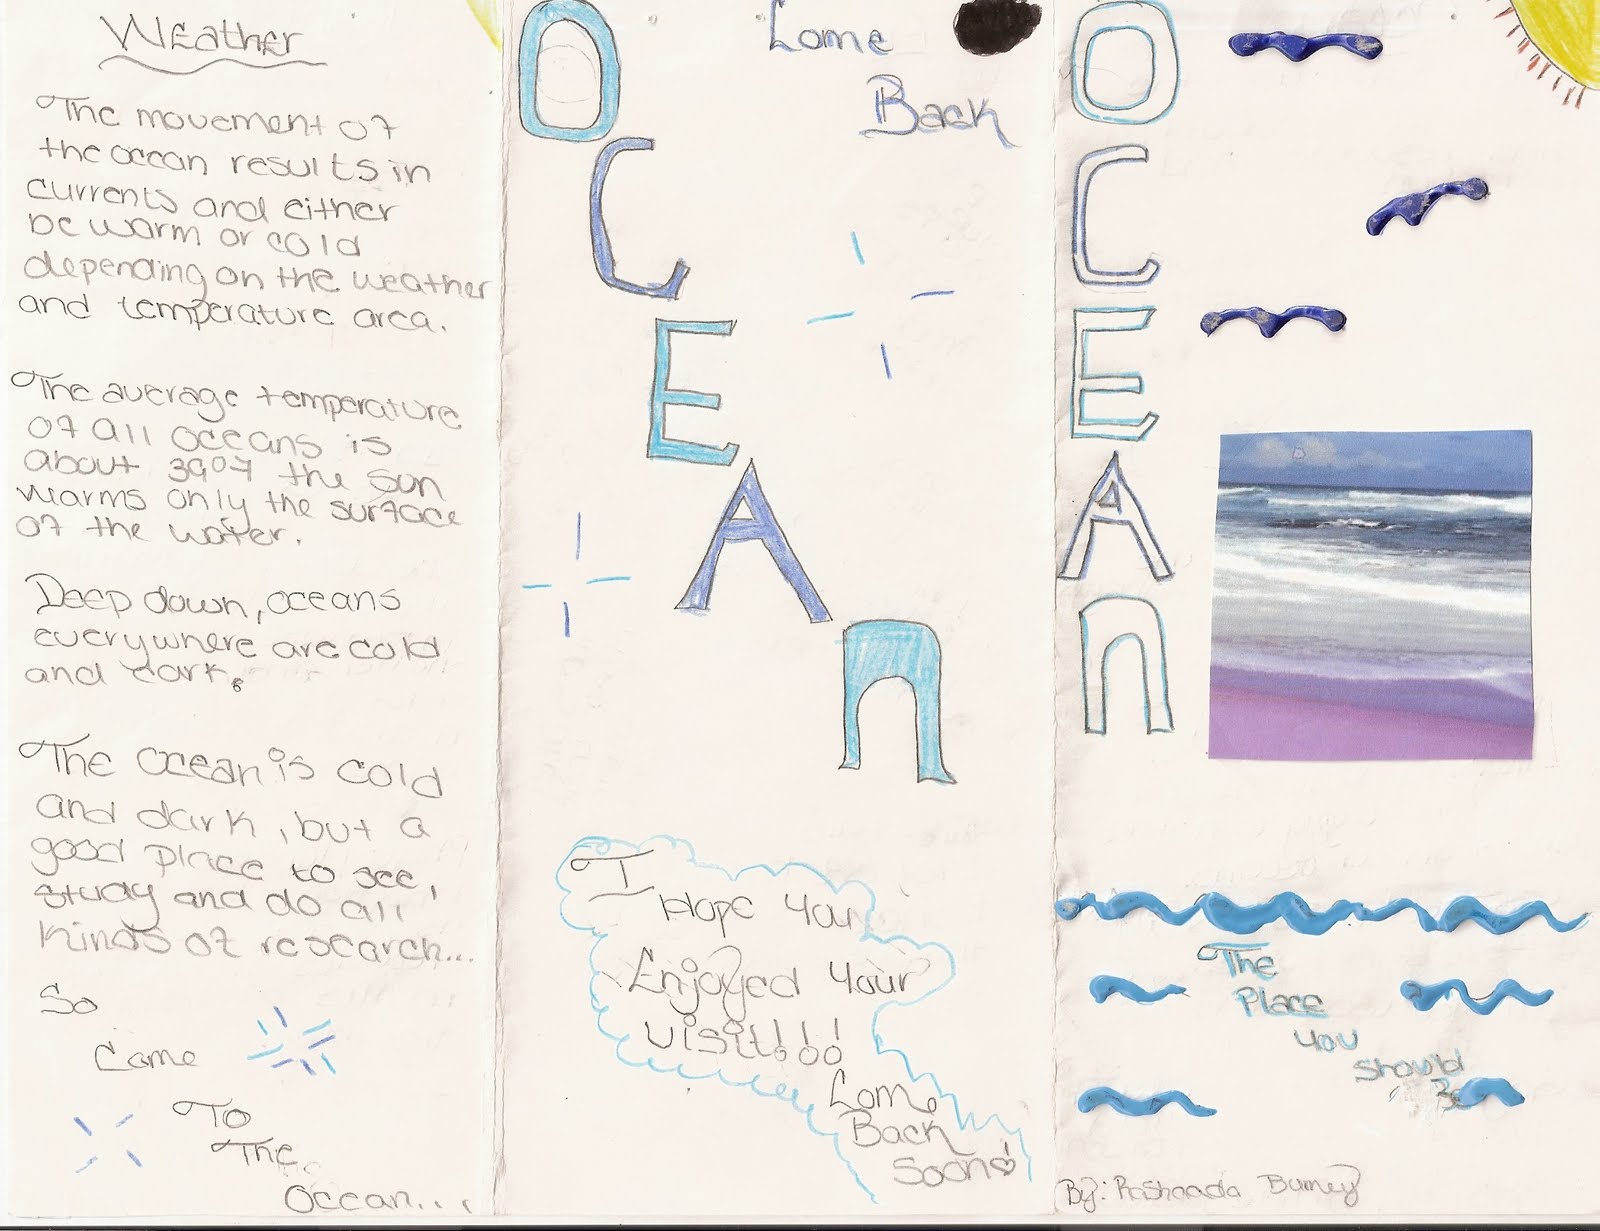 Weather
The movement of
the ocean results in
currents and either
be warm or cold
depending on the weather
and temperature area.
The average temperature
of all oceans is
about 39°F the sun
warms only the surface
of the water.
Deep down, oceans
everywhere are cold
and dark.
The ocean is cold
and dark, but a
good place to see,
study and do all
kinds of research...
So
Come
To
The
Ocean...
Come
Back
OCEAn
I
Hope You
Enjoyed Your
visit!!!
Come
Back
Soon!
OCEAn
The
Place
You
should
Be
By: Rashaada Burney